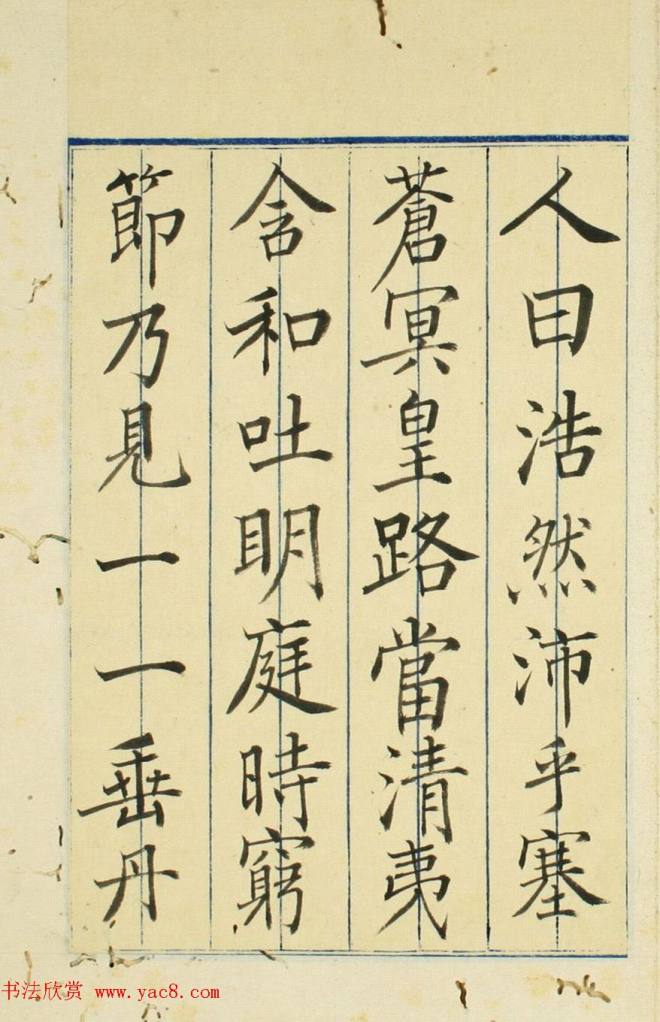 人曰浩然沛乎塞
蒼冥皇路當清夷
含和吐眀庭時窮
節乃見一一垂丹
书法欣赏 www.yac8.com